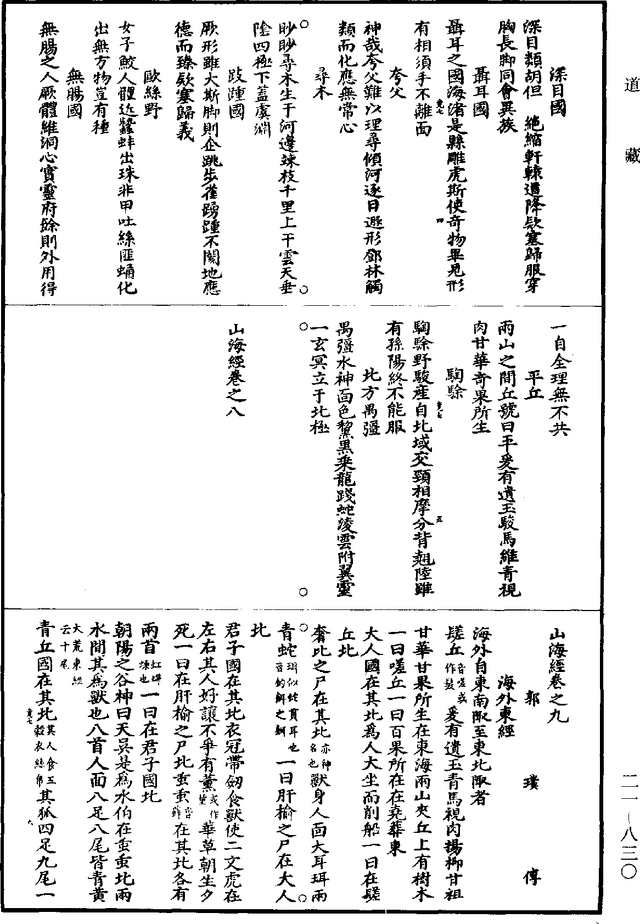 道藏
深目國
深目類胡但□絕縮軒轅道降欵塞歸服穿
胸長脚同會異族
聶耳國
聶耳之國海渚是縣雕虎斯使奇物畢見形
有相須手不離面
夸父
神哉夸父難以理尋傾河逐日遯形鄧林觸
類而化應無常心
尋木
眇眇尋木生于河邊竦枝千里上干雲天垂
陰四極下蓋虞淵
跂踵國
厥形雖大斯脚則企跳步雀踴踵不閡地應
德而臻欵塞歸義
歐絲野
女子鮫人體近蠶蚌出珠非甲吐絲匪蛹化
出無方物豈有種
無腸國
無腸之人厥體維洞心實靈府餘則外用得
一自全理無不共
平丘
兩山之間丘號曰平爰有遺玉駿馬維青視
肉甘華奇果所生
騊駼
騊駼野駿產自北域交頸相摩分背翹陸雖
有孫陽終不能服
北方禺彊
禺彊水神面色黧黑乘龍踐蛇凌雲附翼靈
一玄冥立于北極
山海經卷之八
山海經卷之九
郭璞傳
海外東經
海外自東南陬至東北陬者
𨲠丘音嗟或作髮爰有遺玉青馬視肉楊柳甘柤
甘華甘果所生在東海兩山夾丘上有樹木
一曰嗟丘一曰百果所在在堯葬東
大人國在其北為人大坐而削船一曰在𨲠
丘北
奢比之尸在其北亦神名也獸身人面大耳珥兩
青蛇珥以蛇貫耳也音釣餌之餌一曰肝榆之尸在大人
北
君子國在其北衣冠帶劒食獸使二文虎在
左右其人好讓不爭有薰或作堇華草朝生夕
死一曰在肝榆之尸北䖝䖝音虹在其北各有
兩首虹螮蝀也一曰在君子國北
朝陽之谷神曰天吳是為水伯在䖝䖝北兩
水間其為獸也八首人面八足八尾皆青黃
大荒東經云十尾
青丘國在其北其人食五穀衣絲帛其狐四足九尾一
二一—八三〇